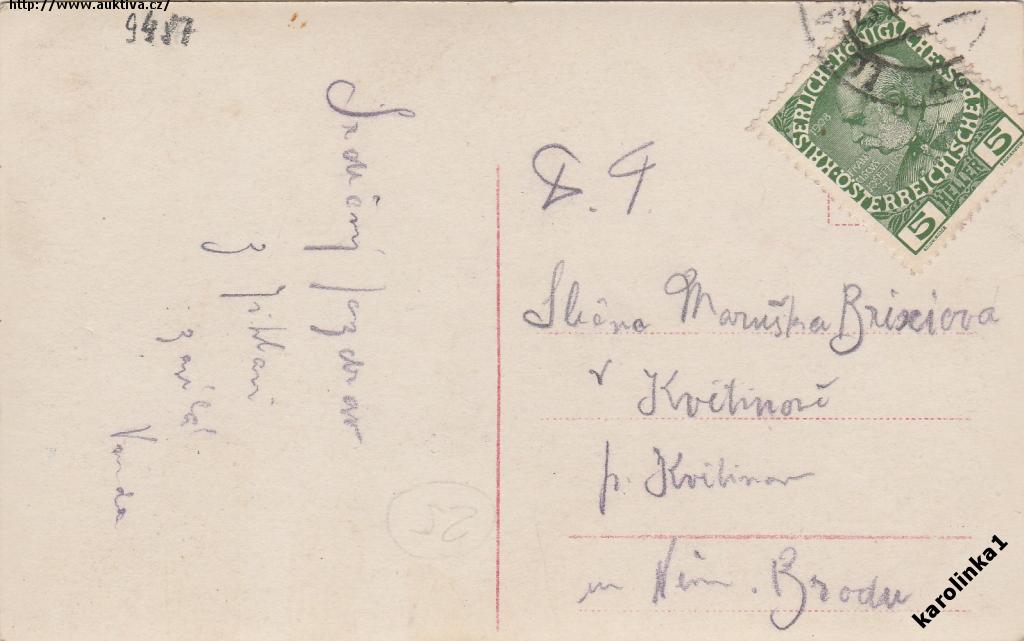 http://www.auktiva.cz/
9487
Srdečný pozdrav
z Jihlavi
zasílá
Vanda
P. T.
Slečna Maruška Brixiova
v Květinově
p. Květinov
u Něm. Brodu
25
KAISERLICHE KÖNIGLICHE ÖSTERREICHISCHE POST
1908
5 HELLER 5
karolinka1